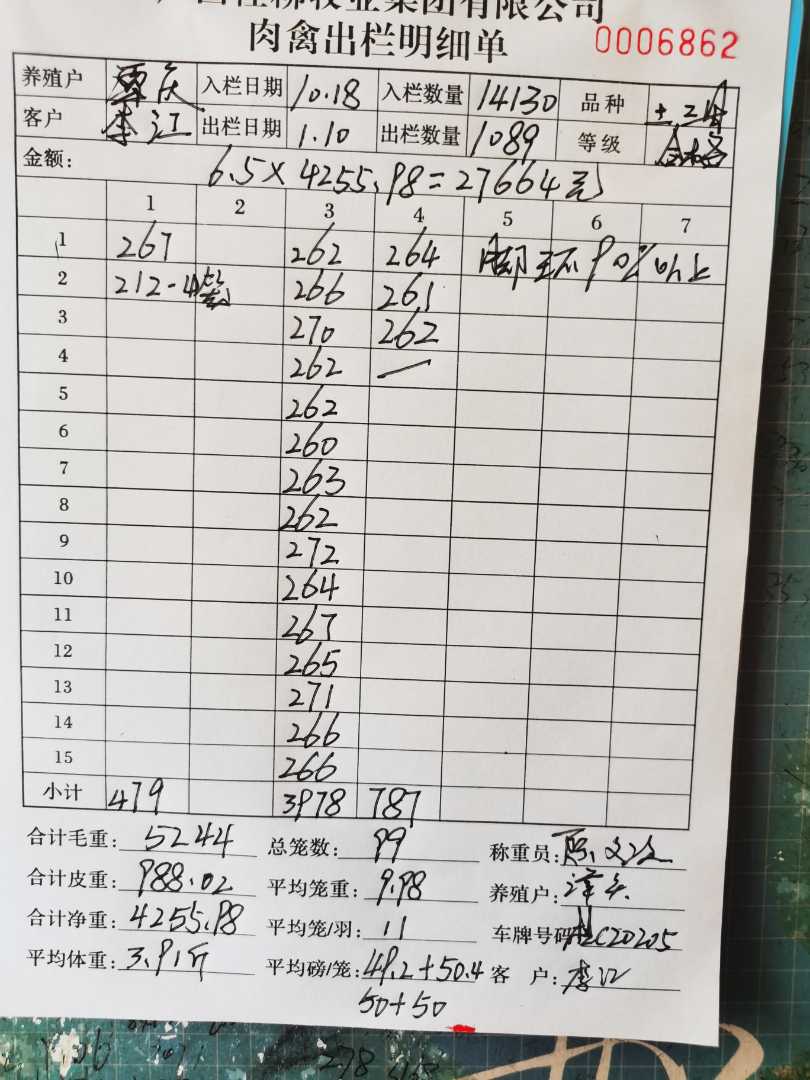 牧业集团有限公司
肉禽出栏明细单 0006862
养殖户 覃庆 入栏日期 10.18 入栏数量 14130 品种 土二
客户 李江 出栏日期 1.10 出栏数量 1089 等级 合格
金额: 6.5×4255.98=27664元
1 2 3 4 5 6 7
1 267 262 264 脚环90%以上
2 212-4 266 261
3 270 262
4 262 —
5 262
6 260
7 263
8 262
9 272
10 264
11 267
12 265
13 271
14 266
15 266
小计 479 3978 787
合计毛重: 5244 总笼数: 99 称重员:
合计皮重: 988.02 平均笼重: 9.98 养殖户:
合计净重: 4255.98 平均笼/羽: 11 车牌号码: C20205
平均体重: 3.91斤 平均磅/笼: 49.2+50.4 客 户: 李江
50+50